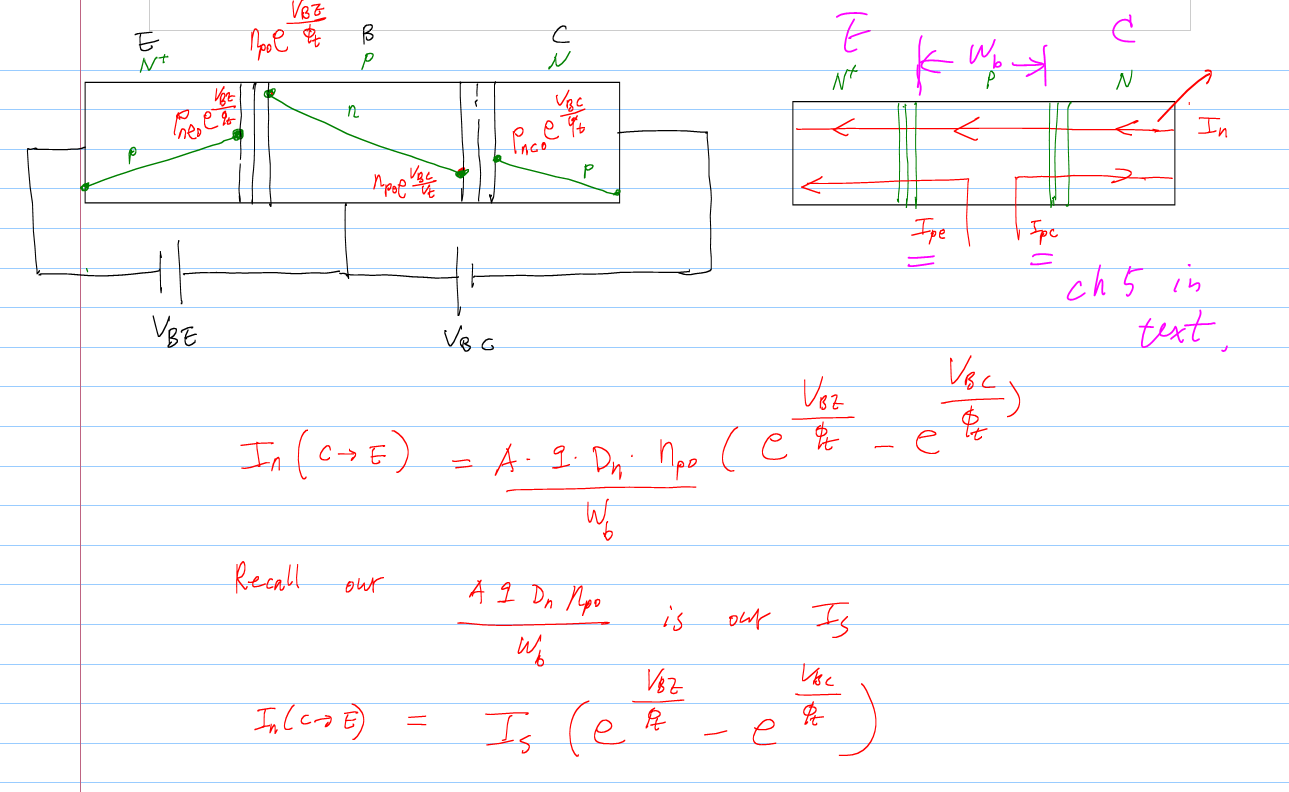 E B C
N+ P N
n_{po} e^{V_{BE}/ϕ_t}
P_{neo} e^{V_{BE}/ϕ_t}
n
P_{nco} e^{V_{BC}/ϕ_t}
p
n_{po} e^{V_{BC}/V_t}
p
V_{BE} V_{BC}
E C
W_b
N+ P N
I_n
I_{pe} I_{pc}
ch 5 in
text.
I_n (C→E) = \frac{A · q · D_n · n_{po}}{W_b} ( e^{V_{BE}/ϕ_t} - e^{V_{BC}/ϕ_t} )
Recall our \frac{A q D_n n_{po}}{W_b} is our I_S
I_n (C→E) = I_S ( e^{V_{BE}/ϕ_t} - e^{V_{BC}/ϕ_t} )